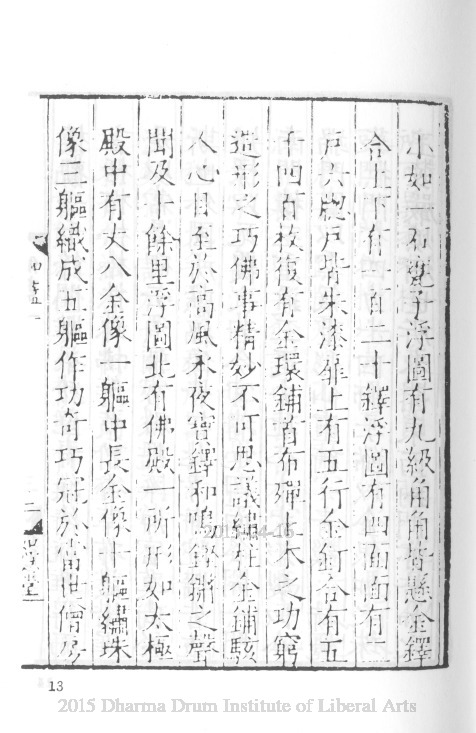 小如一石甕子浮圖有九級角角皆懸金鐸
合上下有一百二十鐸浮圖有四面面有三
戶六牕戶皆朱漆扉上有五行金釘合有五
千四百枚復有金環鋪首布殫土木之功窮
造形之巧佛事精妙不可思議繡柱金鋪駭
人心目至於高風永夜寶鐸和鳴鏗鏘之聲
聞及十餘里浮圖北有佛殿一所形如太極
殿中有丈八金像一軀中長金像十軀繡珠
像三軀織成五軀作功奇巧冠於當世僧房
13
2015 Dharma Drum Institute of Liberal Arts